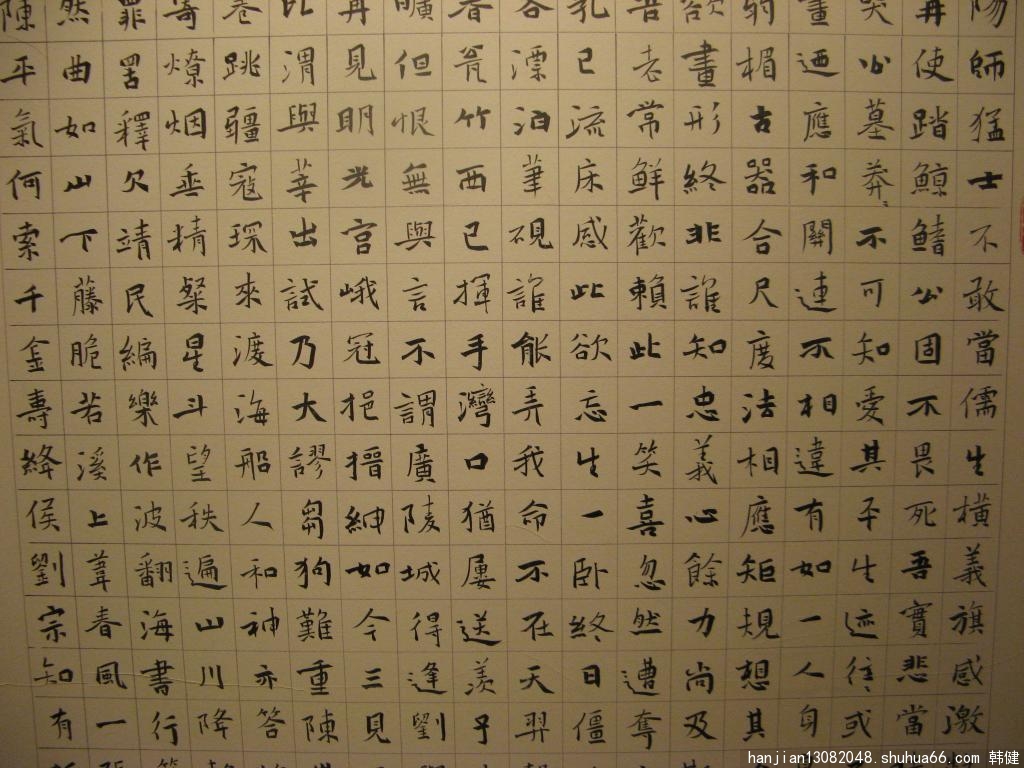 陽師猛士不敢當儒生橫義旗感激
再使踏鯨鰭公固不畏死吾實悲當
哭公墓莽〻不可知愛其平生迹往〻或
畫迺應和關連不相違有如一人身
弱楣古器合尺度法相應矩規想其
欲畫形終非誰知忠義心餘力尚及
吾老常鮮歡賴此一笑喜忽然遭奪
乳已流床感此欲忘生一臥終日僵
谷漂泊筆硯誰能弄我命不在天羿
春瓮竹西已揮手灣口猶屢送羨子
曠但恨無與言不謂廣陵城得逢劉
再見明光宮峨冠挹搢紳如今三見
比渭與莘出試乃大謬芻狗難重陳
卷跳疆寇琛來渡海船人和神亦答
奇燎烟垂精粲星斗望秩遍山川降
罪罟釋欠靖民編樂作波翻海書行
然曲如山下藤脆若溪上葦春風一
陳平氣何索千金壽絳侯劉宗知有
hanjian13082048.shuhua66.com 韩健